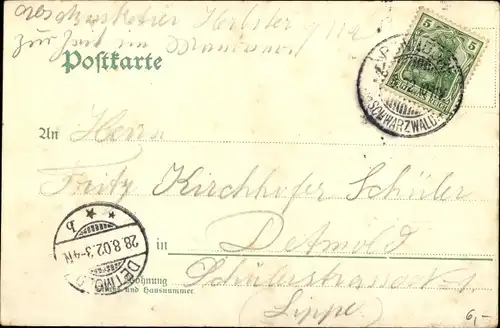 Herbster
zur Zeit im Manöver
Postkarte
5
SCHWARZWALD
An Herrn
Fritz Kirchhofer Schüler
in Detmold
28.8.02.3-4N
DETMOLD
b
Wohnung
und Hausnummer
Schülerstrasse
(Lippe)
6,-